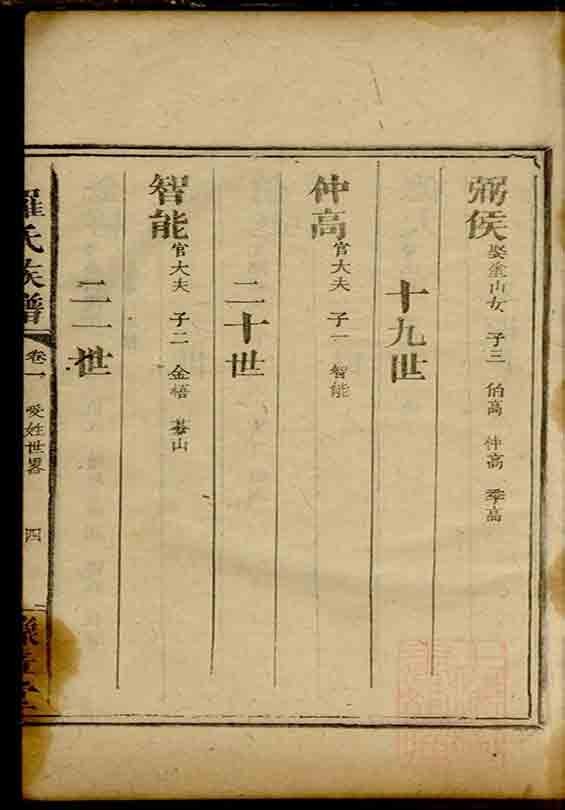 弼侯 娶塗山女 子三 伯高 仲高 季高
十九世
仲高 官大夫 子一 智能
二十世
智能 官大夫 子二 金梧 菶山
二一世
羅氏族譜 卷一 受姓世畧 四